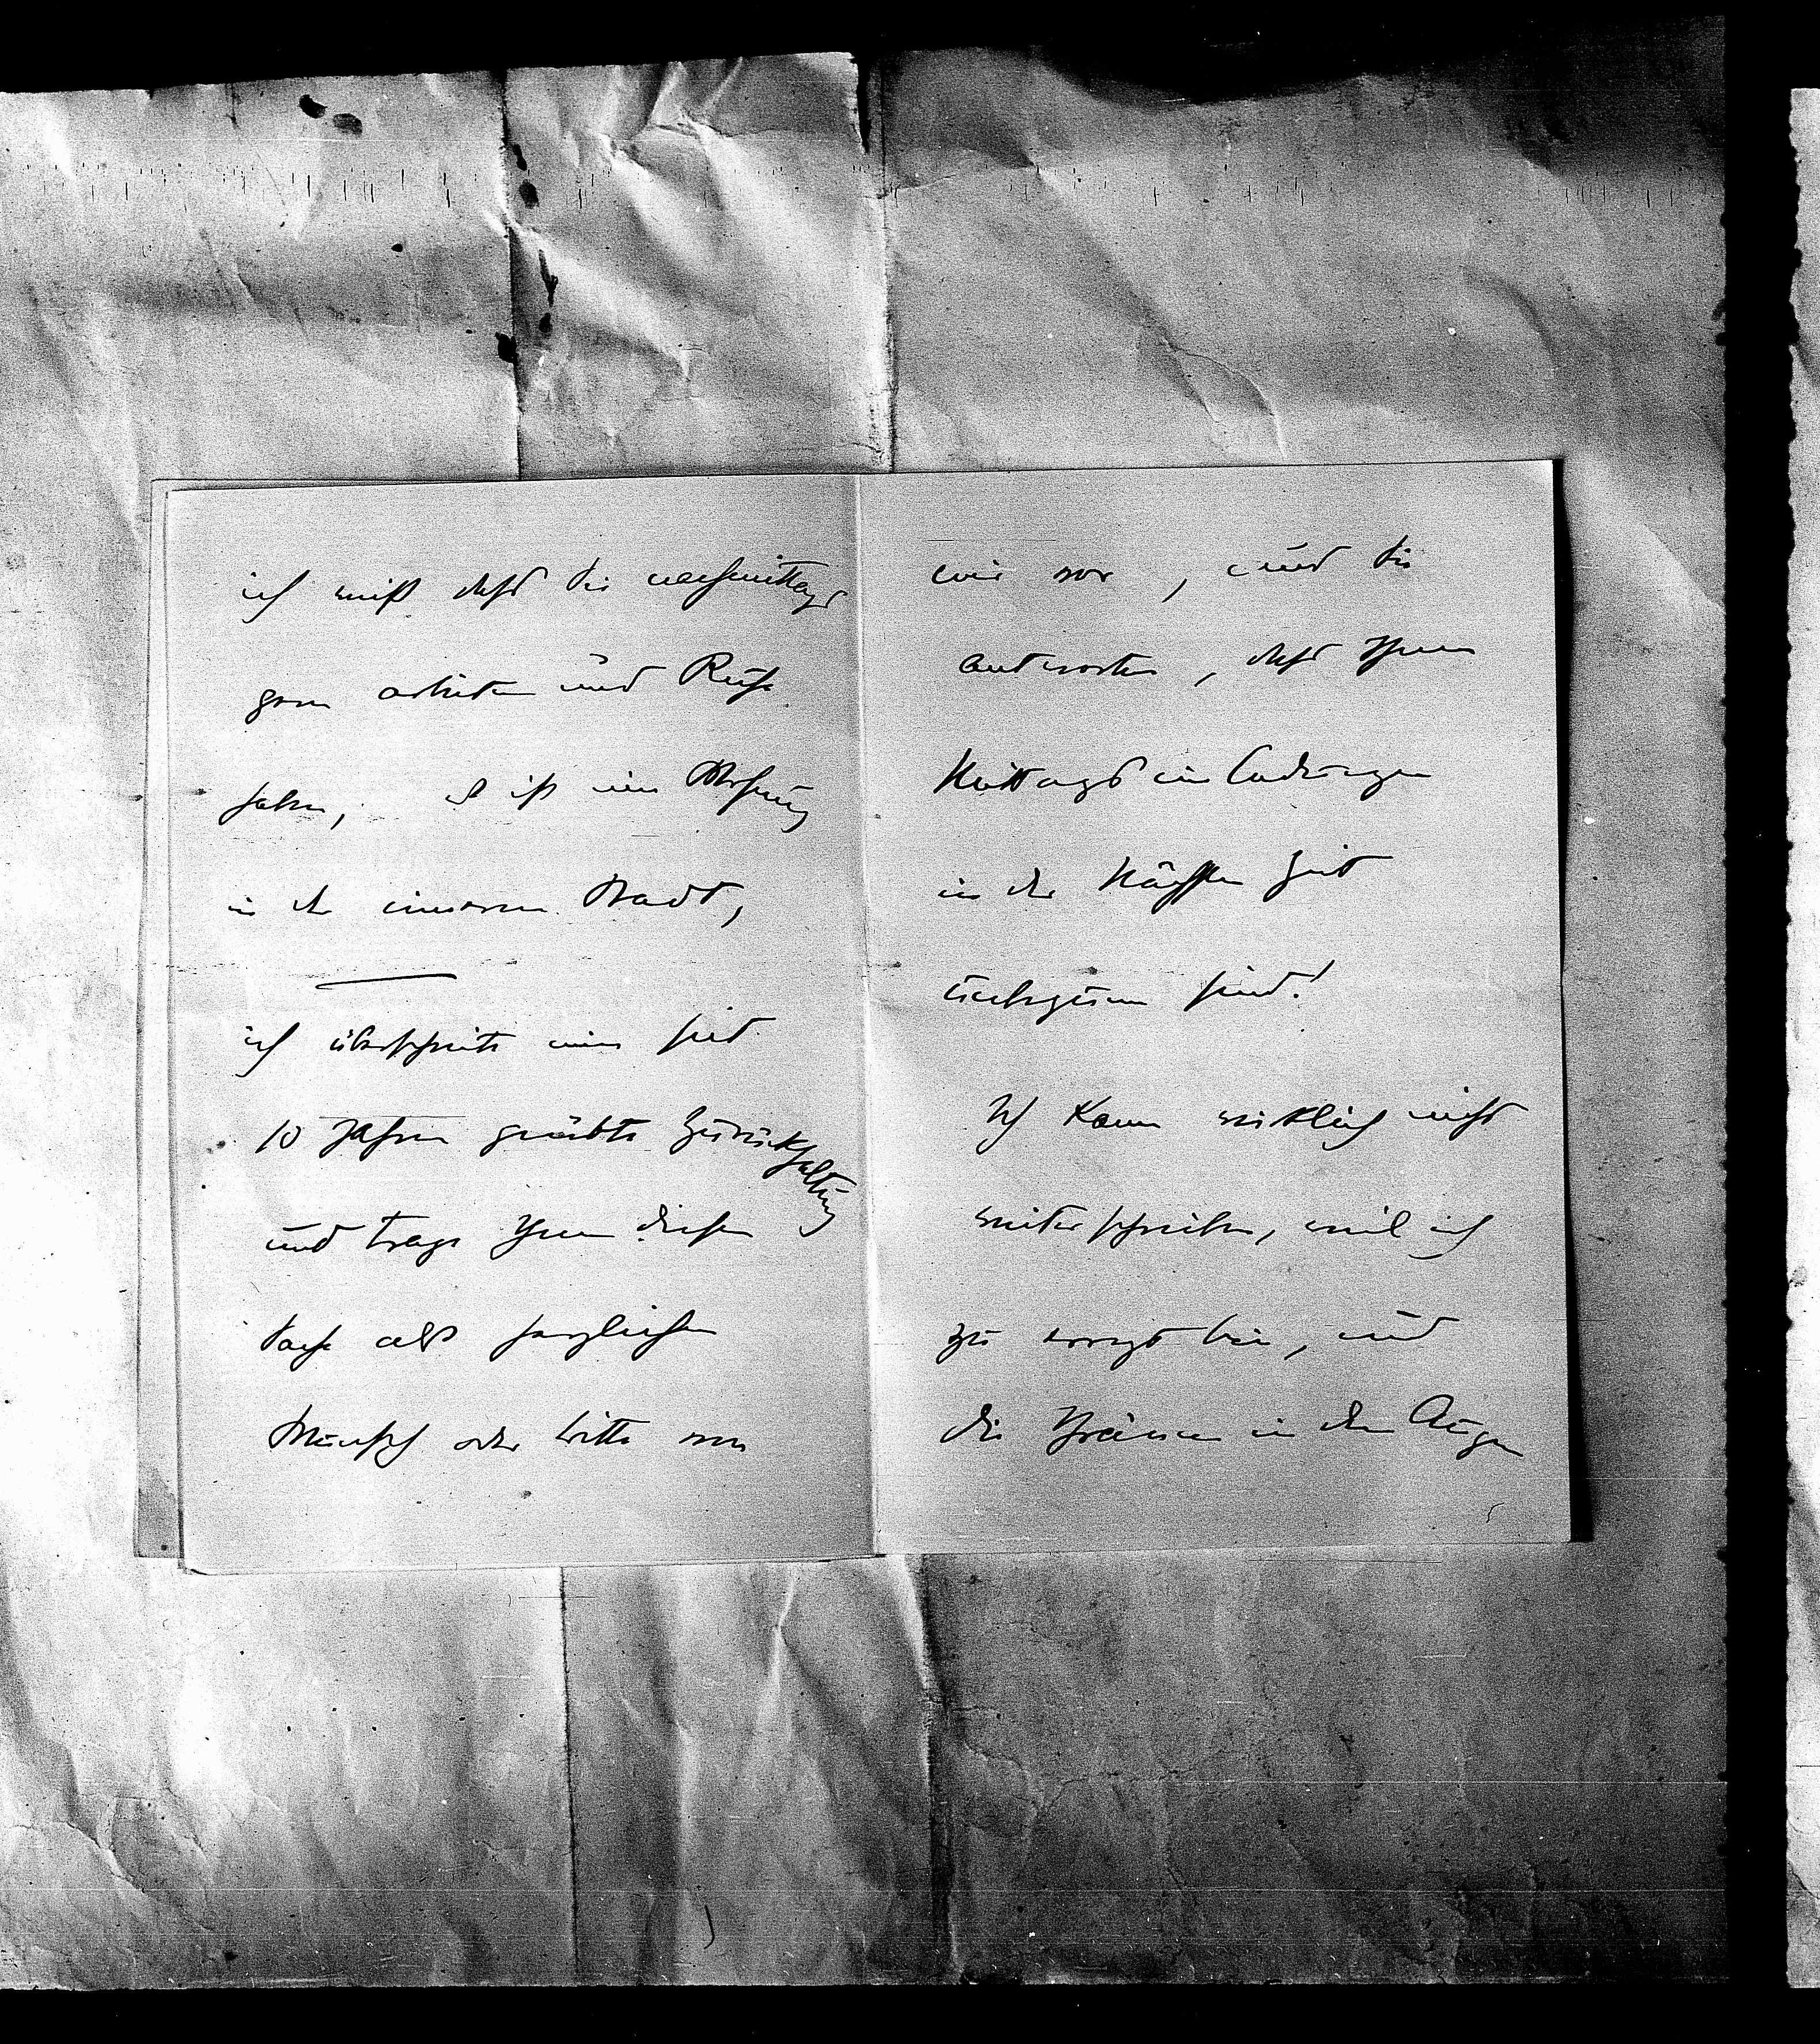 ich weiß daß Sie nachmittags
gern arbeiten und Ruhe
haben, es ist eine Wohnung
in der inneren Stadt,
ich überschreite meine seit
10 Jahren geübte Zurückhaltung
und trage Ihnen diese
Sache als herzlichen
Wunsch oder Bitte von
mir vor, und Sie
antworten, daß Ihnen
Mittags einladungen
in der nächsten Zeit
unbequem sind!
Ich kann wirklich nicht
weiter schreiben, weil ich
zu erregt bin, und
die Thränen in den Augen